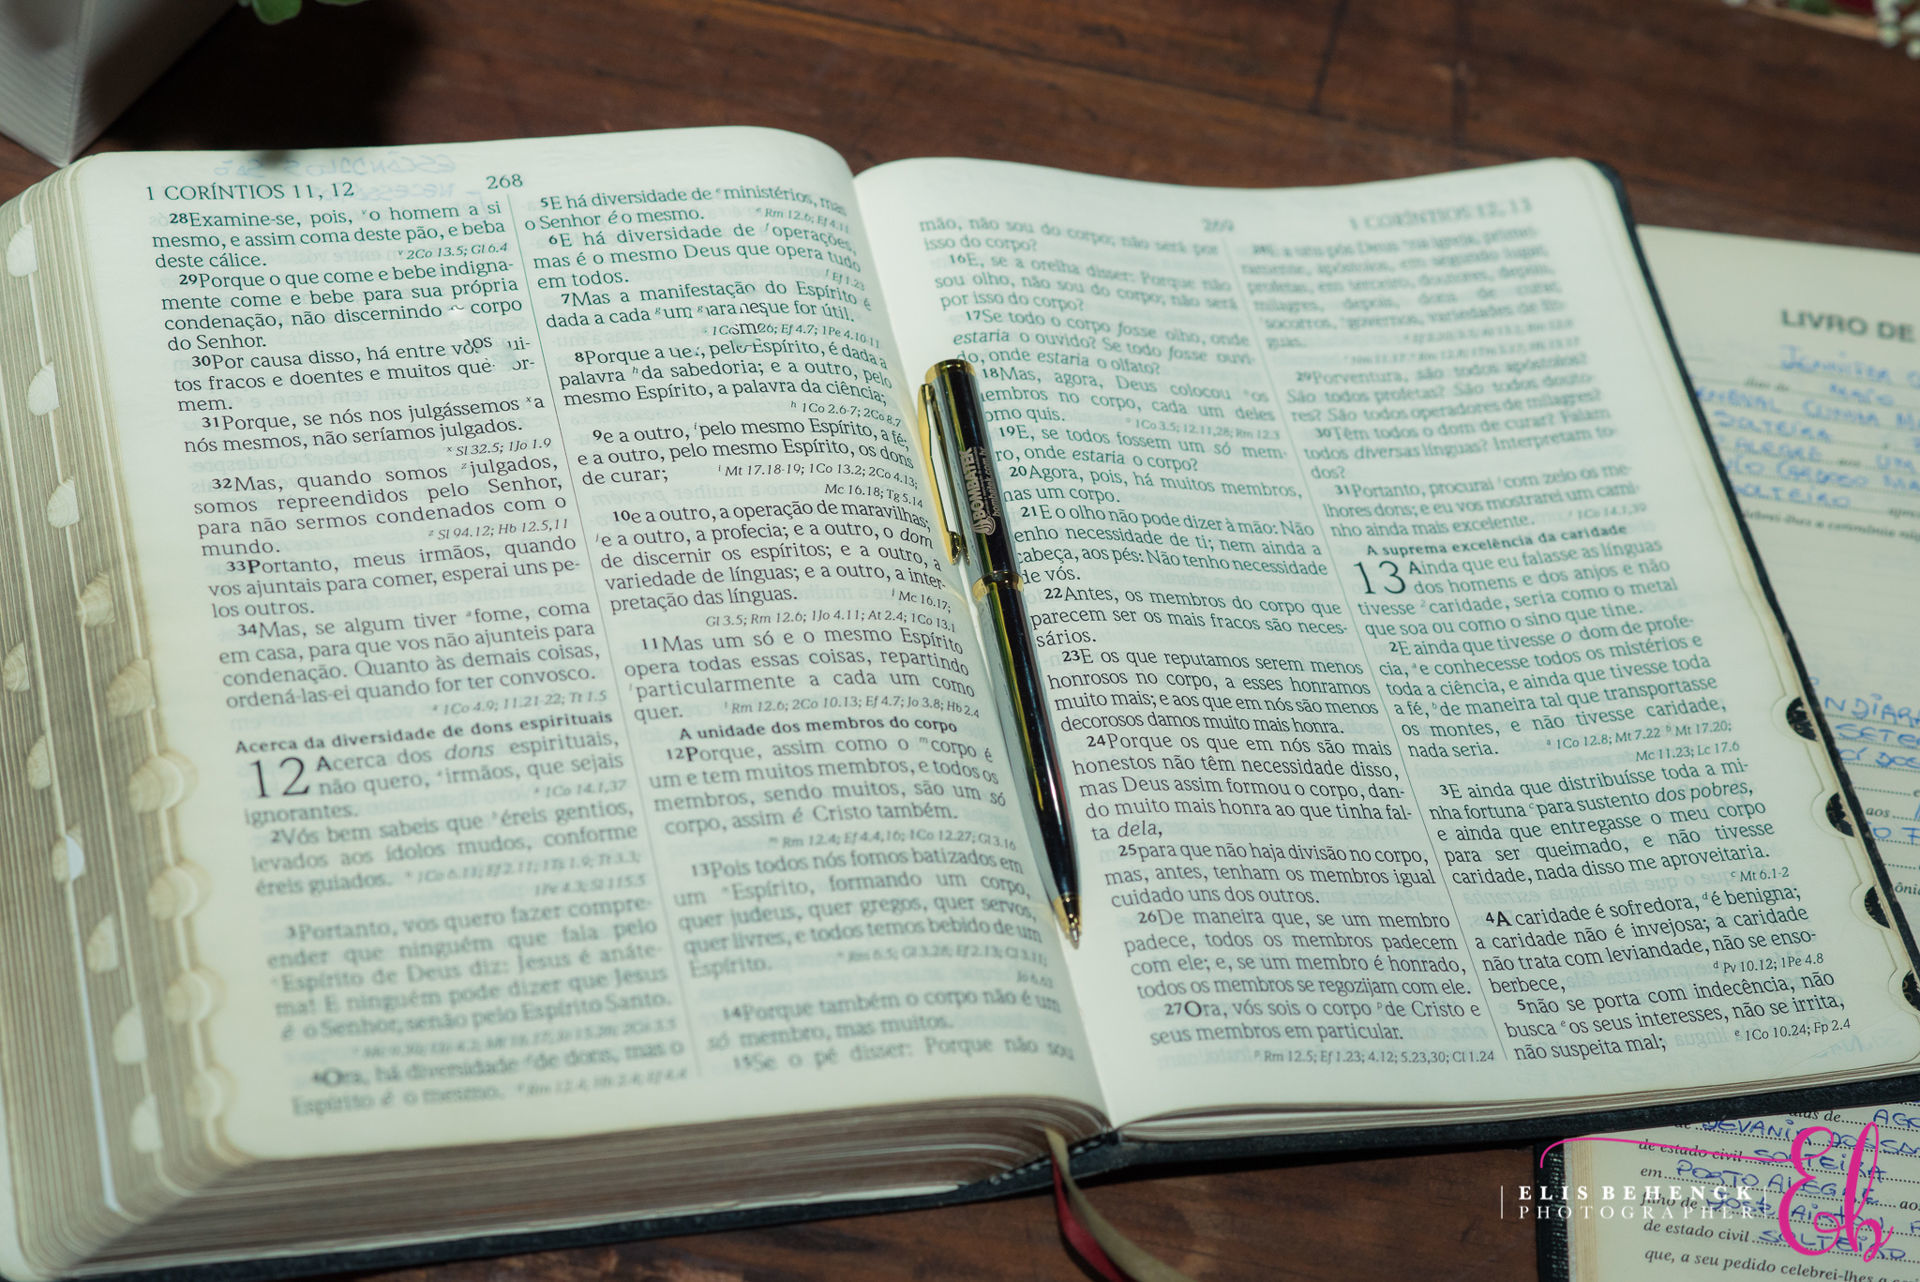 1 CORÍNTIOS 11, 12
268
28Examine-se, pois, ᵛo homem a si
mesmo, e assim coma deste pão, e beba
deste cálice.
ᵛ 2Co 13.5; Gl 6.4
29Porque o que come e bebe indigna-
mente come e bebe para sua própria
condenação, não discernindo corpo
do Senhor.
30Por causa disso, há entre vós
tos fracos e doentes e muitos que
mem.
31Porque, se nós nos julgássemos ˣa
nós mesmos, não seríamos julgados.
ˣ Sl 32.5; 1Jo 1.9
32Mas, quando somos ᶻjulgados,
somos repreendidos pelo Senhor,
para não sermos condenados com o
mundo.
ᶻ Sl 94.12; Hb 12.5,11
33Portanto, meus irmãos, quando
vos ajuntais para comer, esperai uns pe-
los outros.
34Mas, se algum tiver ᵃfome, coma
em casa, para que vos não ajunteis para
condenação. Quanto às demais coisas,
ordená-las-ei quando for ter convosco.
ᵃ 1Co 4.9; 11.21-22; Tt 1.5
Acerca da diversidade de dons espirituais
12 Acerca dos dons espirituais,
não quero, irmãos, que sejais
ignorantes.
1Co 14.1,37
2Vós bem sabeis que ᵇéreis gentios,
levados aos ídolos mudos, conforme
éreis guiados.
3Portanto, vos quero fazer compre-
ender que ninguém que fala pelo
Espírito de Deus diz: Jesus é anáte-
ma! E ninguém pode dizer que Jesus
é o Senhor, senão pelo Espírito Santo.
4Ora, há diversidade ᵈde dons, mas o
Espírito é o mesmo.
ᵈ Rm 12.4; Hb 2.4; Ef 4.4
5E há diversidade de ᵉministérios, mas
o Senhor é o mesmo.
ᵉ Rm 12.6; Ef 4.11
6E há diversidade de ᶠoperações,
mas é o mesmo Deus que opera tudo
em todos.
ᶠ Ef 1.23
7Mas a manifestação do Espírito é
dada a cada ᵍum que for útil.
Ef 4.7; 1Pe 4.10-11
8Porque a pelo Espírito, é dada a
palavra ʰda sabedoria; e a outro, pelo
mesmo Espírito, a palavra da ciência;
ʰ 1Co 2.6-7; 2Co 8.7
9e a outro, ⁱpelo mesmo Espírito, a fé;
e a outro, pelo mesmo Espírito, os dons
de curar;
ⁱ Mt 17.18-19; 1Co 13.2; 2Co 4.13;
Mc 16.18; Tg 5.14
10e a outro, a operação de maravilhas;
ʲe a outro, a profecia; e a outro, o dom
de discernir os espíritos; e a outro, a
variedade de línguas; e a outro, a inter-
pretação das línguas.
ʲ Mc 16.17;
Gl 3.5; Rm 12.6; 1Jo 4.11; At 2.4; 1Co 13.1
11Mas um só e o mesmo Espírito
opera todas essas coisas, repartindo
ˡparticularmente a cada um como
quer.
ˡ Rm 12.6; 2Co 10.13; Ef 4.7; Jo 3.8; Hb 2.4
A unidade dos membros do corpo
12Porque, assim como o ᵐcorpo é
um e tem muitos membros, e todos os
membros, sendo muitos, são um só
corpo, assim é Cristo também.
ᵐ Rm 12.4; Ef 4.4,16; 1Co 12.27; Gl 3.16
13Pois todos nós fomos batizados em
um ⁿEspírito, formando um corpo,
quer judeus, quer gregos, quer servos,
quer livres, e todos temos bebido de um
Espírito.
ⁿ Rm 6.5; Gl 3.28; Ef 2.13; Cl 3.11;
Jo 6.63
14Porque também o corpo não é um
só membro, mas muitos.
15Se o pé disser: Porque não sou
269
1 CORÍNTIOS 12, 13
mão, não sou do corpo; não será por
isso do corpo?
16E, se a orelha disser: Porque não
sou olho, não sou do corpo; não será
por isso do corpo?
17Se todo o corpo fosse olho, onde
estaria o ouvido? Se todo fosse ouvi-
do, onde estaria o olfato?
18Mas, agora, Deus colocou ᵒos
membros no corpo, cada um deles
como quis.
1Co 3.5; 12.11,28; Rm 12.3
19E, se todos fossem um só mem-
ro, onde estaria o corpo?
20Agora, pois, há muitos membros,
mas um corpo.
21E o olho não pode dizer à mão: Não
enho necessidade de ti; nem ainda a
cabeça, aos pés: Não tenho necessidade
de vós.
22Antes, os membros do corpo que
parecem ser os mais fracos são neces-
sários.
23E os que reputamos serem menos
honrosos no corpo, a esses honramos
muito mais; e aos que em nós são menos
decorosos damos muito mais honra.
24Porque os que em nós são mais
honestos não têm necessidade disso,
mas Deus assim formou o corpo, dan-
do muito mais honra ao que tinha fal-
ta dela,
25para que não haja divisão no corpo,
mas, antes, tenham os membros igual
cuidado uns dos outros.
26De maneira que, se um membro
padece, todos os membros padecem
com ele; e, se um membro é honrado,
todos os membros se regozijam com ele.
27Ora, vós sois o corpo ᵖde Cristo e
seus membros em particular.
ᵖ Rm 12.5; Ef 1.23; 4.12; 5.23,30; Cl 1.24
28E a uns pôs Deus na igreja, primei-
ramente, apóstolos, em segundo lugar,
profetas, em terceiro, doutores, depois,
milagres, depois, dons de curar,
socorros, governos, variedades de lín-
guas.
29Porventura, são todos apóstolos?
São todos profetas? São todos douto-
res? São todos operadores de milagres?
30Têm todos o dom de curar? Falam
todos diversas línguas? Interpretam to-
dos?
31Portanto, procurai ʳcom zelo os me-
lhores dons; e eu vos mostrarei um cami-
nho ainda mais excelente.
ʳ 1Co 14.1,39
A suprema excelência da caridade
13 Ainda que eu falasse as línguas
dos homens e dos anjos e não
tivesse ᶻcaridade, seria como o metal
que soa ou como o sino que tine.
2E ainda que tivesse o dom de profe-
cia, ᵃe conhecesse todos os mistérios e
toda a ciência, e ainda que tivesse toda
a fé, ᵇde maneira tal que transportasse
os montes, e não tivesse caridade,
nada seria.
ᵃ 1Co 12.8; Mt 7.22 ᵇ Mt 17.20;
Mc 11.23; Lc 17.6
3E ainda que distribuísse toda a mi-
nha fortuna ᶜpara sustento dos pobres,
e ainda que entregasse o meu corpo
para ser queimado, e não tivesse
caridade, nada disso me aproveitaria.
ᶜ Mt 6.1-2
4A caridade é sofredora, ᵈé benigna;
a caridade não é invejosa; a caridade
não trata com leviandade, não se enso-
berbece,
ᵈ Pv 10.12; 1Pe 4.8
5não se porta com indecência, não
busca ᵉos seus interesses, não se irrita,
não suspeita mal;
ᵉ 1Co 10.24; Fp 2.4
BOMBATEK
LIVRO DE
JENNIFER
dias de MAIO
SOLTEIRA
ALEGRE aos UM
CARDOSO
SOLTEIRO
celebrei-lhes a cerimônia
aos
de
JEVANIA
de estado civil SOLTEIRA
em PORTO ALEGRE aos
filho de
de estado civil SOLTEIRO
que, a seu pedido celebrei-lhes a
ELIS BEHENCK
PHOTOGRAPHER
Eb